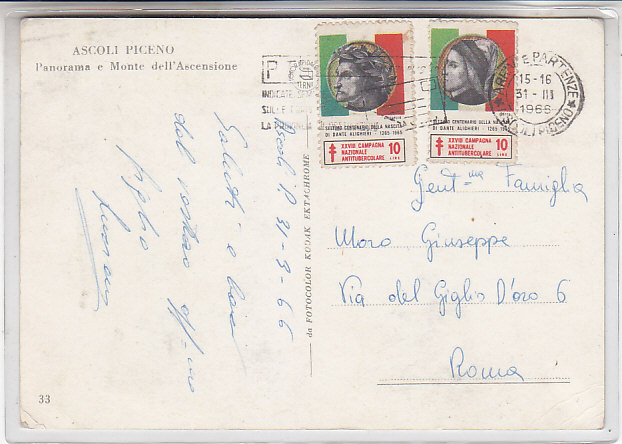 ASCOLI PICENO
Panorama e Monte dell'Ascensione
INDICATE
SULLE
LA
SETTIMO CENTENARIO DELLA NASCITA
DI DANTE ALIGHIERI 1265-1965
XXVIII CAMPAGNA
NAZIONALE
ANTITUBERCOLARE
10
LIRE
SETTIMO CENTENARIO DELLA NASCITA
DI DANTE ALIGHIERI 1265-1965
XXVIII CAMPAGNA
NAZIONALE
ANTITUBERCOLARE
10
LIRE
ARRIVI E PARTENZE
15-16
31-III
1966
Ascoli P. 31-3-66
Saluti e baci
dal vostro aff-mo
figlio
da FOTOCOLOR KODAK EKTACHROME
Gent-ma Famiglia
Moro Giuseppe
Via del Giglio D'oro 6
Roma
33